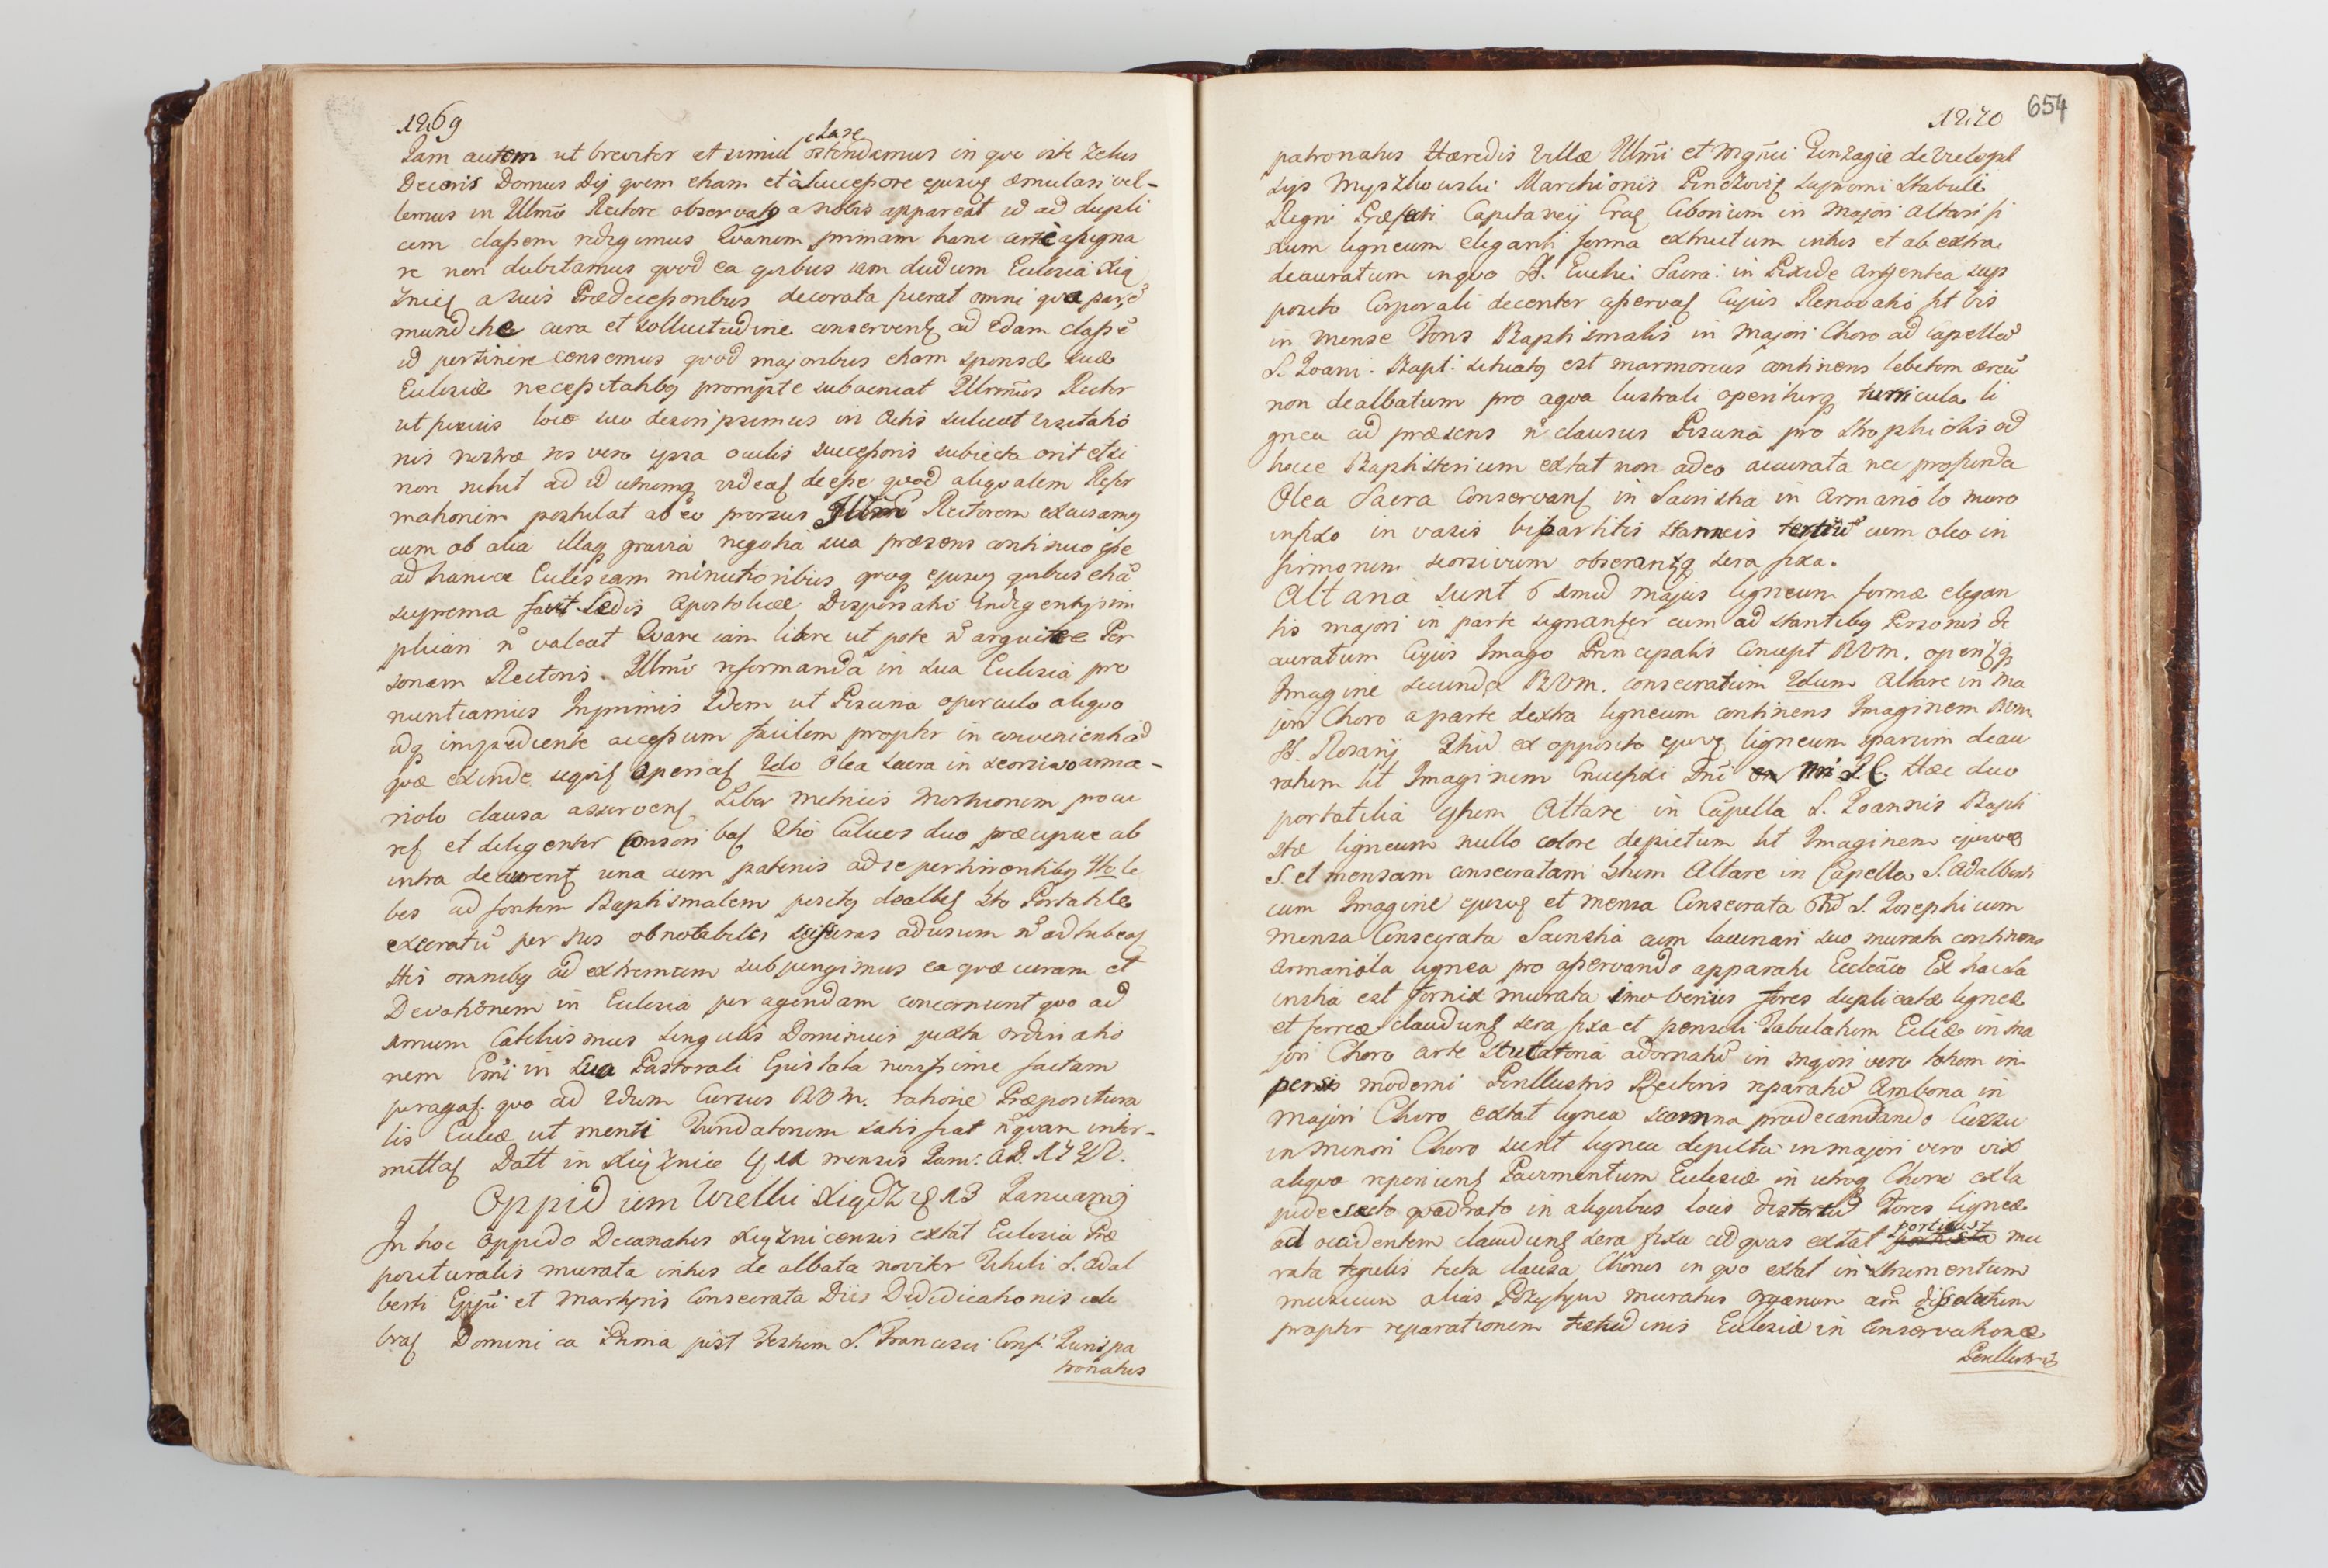 1269
Jam autem ut breviter et simul clare ostendamus in quo iste Zelus
Decoris Domus Dei quem etiam et à Succepore ejusq æmulari vel-
lemus in Illmo Rectore observatq a nobis appareat id ad dupli
cem claßem redigemus Quarum primam hanc certè aßigna
re non dubitamus quod ea quibus iam dudum Ecclesia Xią
Znicę a suis Prædeceßoribus decorata fuerat omni qua par ē
munditie cura et sollicitudine conserventz ad 2dam claßē
id pertinere censemus quod majoribus etiam sponsæ suæ
Ecclesiæ neceßitatibq prompte subveniat Illmus Rector
ut fusius loco suo descripsimus in Actis scilicet Visitatio
nis nostræ res vero ipsa oculis succeßoris subiecta erit etsi
non nihil ad id utrumq videaʃ deeße quod aliqualem Refor
mationem postulat ab eo prorsus Illmū Rectorem excusamq
cum ob alia illaq gravia negotia sua præsens continuo eße
ad hancce Ecclesiam minutioribus quoq ejusq quibus etiā
suprema favit Sedis Apostolicæ Dispensatio Indigentijs im
plicari n valeat Quare iam libere ut pote n arguitæ Per
sonam Rectoris Illmi reformanda in sua Ecclesia pro
nuntiamus Inprimis Idem ut Piscina operculo aliquo
idq impediente acceßum facilem propter inconvenientiā
quæ exinde sequiʃ operiaʃ 2do Olea Sacra in seorsivo arma-
riolo clausa asserventʃ Liber Metrices Mortuorum procu
reʃ et diligenter conscribaʃ 3tio Calices duo præcipue ab
intra deaurentʃ una cum patenis ad se pertinentibq 4to le
bes ad fontem Baptismalem positq dealbeʃ 5to Portatile
execratū per nos ob notabiles scißuras ad usum n adhibeaʃ
His omnibq ad extremum subjungimus ea quæ curam et
Devotionem in Ecclesia peragendam concernunt quo ad
1mum Catechismus singulis Dominicis juxta ordinatio
nem Emi in sua Pastorali Epistola novißime factam
peragaʃ quo ad 2dum Cursus BVM. ratione Præpositura
lis Ecclæ ut menti Fundatorum satis fiat nquam inter-
mittaʃ Datt in Xiąznice Q 11 mensis Janu: AD. 1722.
Oppidum Wielki Xiądz Q 13 Januarij
In hoc Oppido Decanatus Xiąznicensis extat Ecclesia Præ
posituralis murata intus de albata noviter Tituli S. Adal
berti Eppi et Martyris Consecrata Dies Dedicationis cele
braʃ Dominica Prima post Festum S. Francisci Conf: Jurispa
tronatus
1270 654
patronatus Hæredis Villæ Illmi et Mgnci Gonzagæ de Wielopol
scijs Myszkowski Marchionis Pinczoviæ supremi Stabuli
Regni Præfecti Capitanei Crac Ciborium in Majori Altari fi
xum ligneum eleganti forma extructum intus et ab extra
deauratum in quo SS. Euchi: Sacra: in Pixide Argentea sup
posito Corporali decenter aßervaʃ Cujus Renovatio fit bis
in mense Fons Baptismalis in Majori Choro ad Capellā
S. Joan: Bapt: situatq est marmoreus continens lebetem æreū
non dealbatum pro aqua lustrali operiturq turricula li
gnea ad præsens n clausus Piscina pro strophiolis ad
hocce Baptisterium extat non adeo accurata nec profunda
Olea Sacra Conservantʃ in Sacristia in armariolo muro
infixo in vasis bipartitis stanneis tertiū cum oleo in
firmorum seorsivum obserantzq sera fixa.
Altaria sunt 6 1mūd majus ligneum formæ elegan
tis majori in parte signanter cum ad stantibq Personis de
auratum Cujus Imago Principalis Concept BVM. openʒq
Imagine secundæ BVM. consecratum 2dum Altare in Ma
jori Choro a parte dextra ligneum continens Imaginem BVM
SS. Rosarij 3tiū ex opposito ejusq ligneum sparsim deau
ratum ht Imaginem Crucifixi Dni Nri J.C. Hæc duo
portatilia 4tum Altare in Capella S. Joannis Bapti
stæ ligneum nullo colore depictum ht Imaginem ejusdem
S. et mensam consecratam 5tum Altare in Capella S. Adalberti
cum Imagine ejusq et mensa Consecrata 6tū S. Josephi cum
mensa Consecrata Sacristia cum lacunari suo murata continens
Armariola lignea pro aßervando apparatu Ecclāco Ex hac Sa
cristia est fornix murata imo verius fores duplicatæ ligneæ
et ferreæ claudunʃ sera fixa et pensili Tabulatum Eccliæ in ma
jori Choro arte Stucatoria adornatū in mgiori vero totum im
pensis moderni Perillustris Rectoris reparatū Ambona in
Majori Choro extat lignea scamna pro decantando Cursu
in minori Choro sunt lignea depicta in majori vero vix
aliqua reperiunʃ Pavimentum Ecclesiæ in utroq Choro ex la
pide secto quadrato in aliquibus locis distortū Fores ligneæ
ad occidentem claudunʃ sera fixa ad quas extat porticus mu
rata tegulis tecta clausa Chorus in quo extat instrumentum
musicum alias Pozytyw muratus Organum aūt dißolutum
propter reparationem testudinis Ecclesiæ in Conservatione
Perillustris